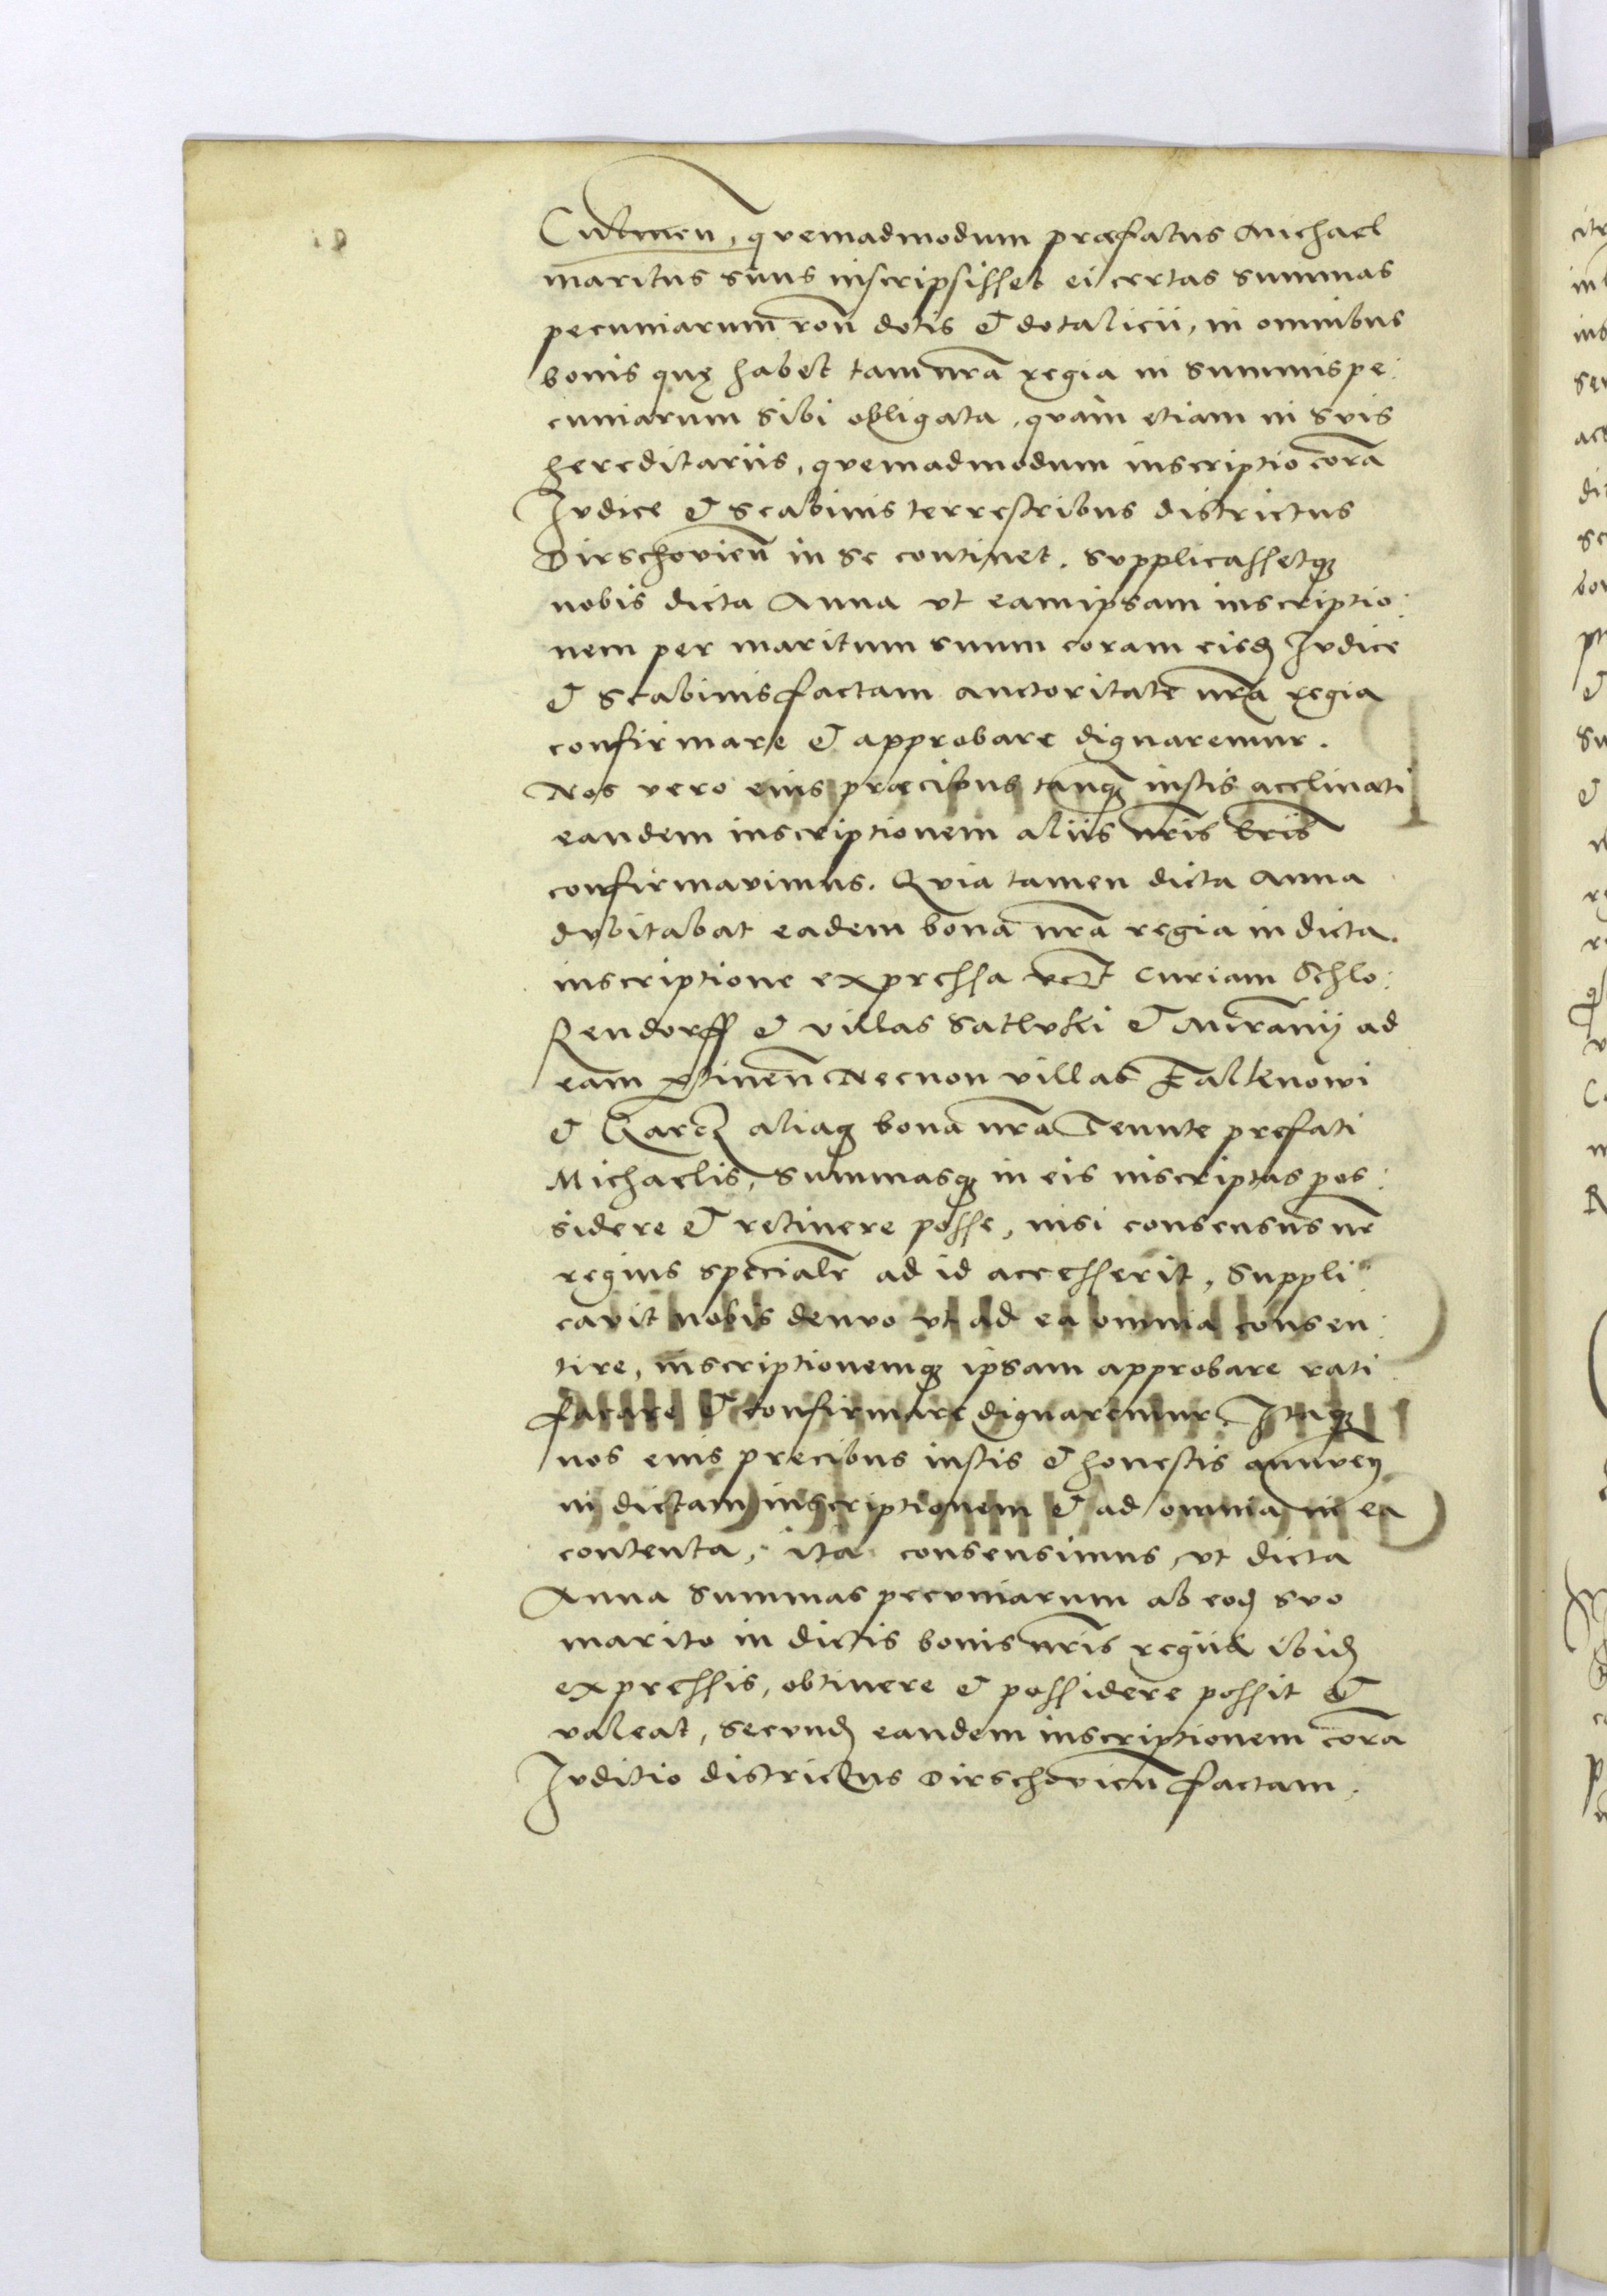 Cidemen, quemadmodum præfatus Michael
maritus suus inscripsisset ei certas summas
pecuniarum ron̄ dotis & dotalicii, in omnibus
bonis quę habet tam nr̄a regia in summis pe:
cuniarum sibi obligata, quàm etiam in suis
hereditariis, quemadmodum inscriptio corā
Iudice & Scabinis terrestribus districtus
Dirschovien̄ in se continet. Supplicassetq3
nobis dicta Anna ut eam ipsam inscriptio:
nem per maritum suum coram eisd Iudice
& Scabinis factam auctoritate nr̄a regia
confirmare & approbare dignaremur.
Nos vero eius præcibus tanq3 iustis acclinati
eandem inscriptionem aliis nr̄is lr̄is
confirmavimus. Quia tamen dicta Anna
dubitabat eadem bona nr̄a regia in dicta
inscriptione expressa vct Curiam Schlo:
kendorff & villas Satluki & Mirāny ad
eam ptinen̄ Necnon villas Falkenowi
& aliaq bona nr̄a Tenute prefati
Michaelis, summasq3 in eis inscriptas pos:
sidere & retinere posse, nisi consensus nr̄
regius specialr̄ ad id accesserit, suppli:
cavit nobis denuo ut ad ea omnia consen:
tire, inscriptionemq3 ipsam approbare rati
ficare & confirmare dignaremur. Itaq3
nos eius precibus iustis & honestis annuen
in dictam inscriptionem & ad omnia in ea
contenta, ita consensimus, ut dicta
Anna summas pecuniarum ab eod suo
marito in dictis bonis nr̄is regiis ibid
expressis, obtinere & possidere possit &
valeat, secund eandem inscriptionem corā
Iuditio districtus Dirschovien̄ factam.